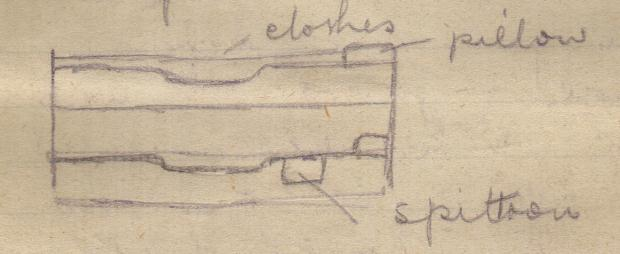 clothes
pillow
spittoon